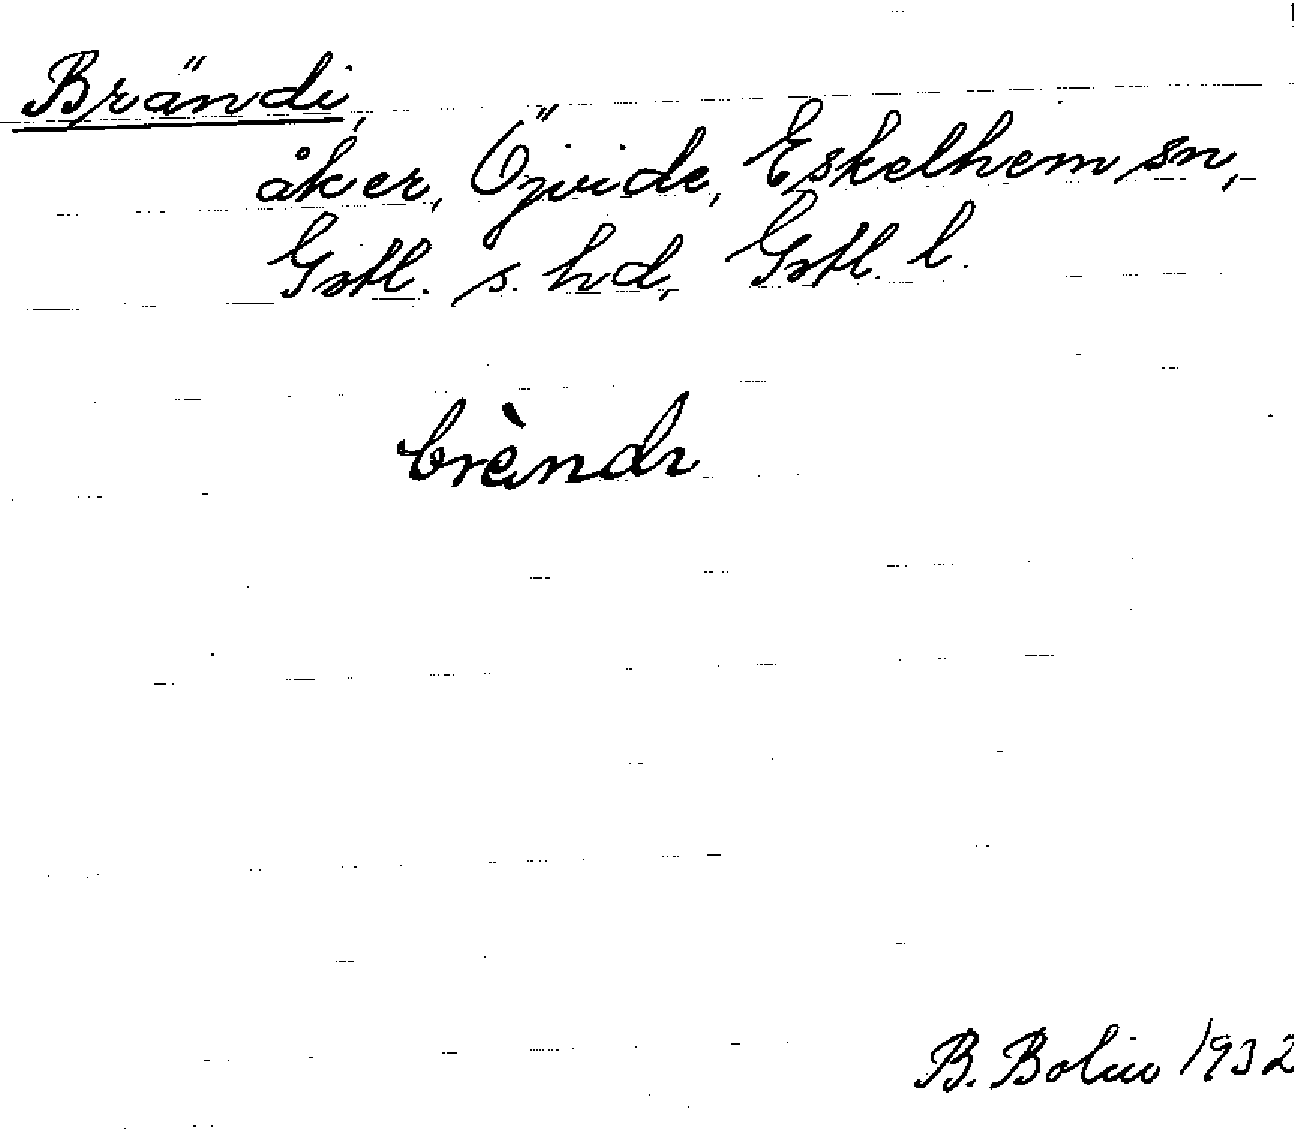 Brändi,
åker, Öjvide, Eskelhem sn,
Gotl. s. hd, Gotl. l.
brèndı
B. Bolin 1932